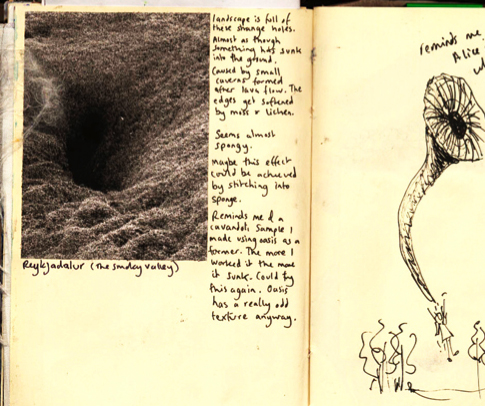 landscape is full of
these strange holes.
Almost as though
something has sunk
into the ground.
Caused by small
caverns formed
after lava flow. The
edges get softened
by moss & lichen.
Seems almost
spongy.
Maybe this effect
could be achieved
by stitching into
sponge.
Reminds me of a
cavandoli sample I
made using oasis as a
former. The more I
worked it the more
it sunk. Could try
this again. Oasis
has a really odd
texture anyway.
Reykjadalur (the smokey valley)
reminds me
Alice